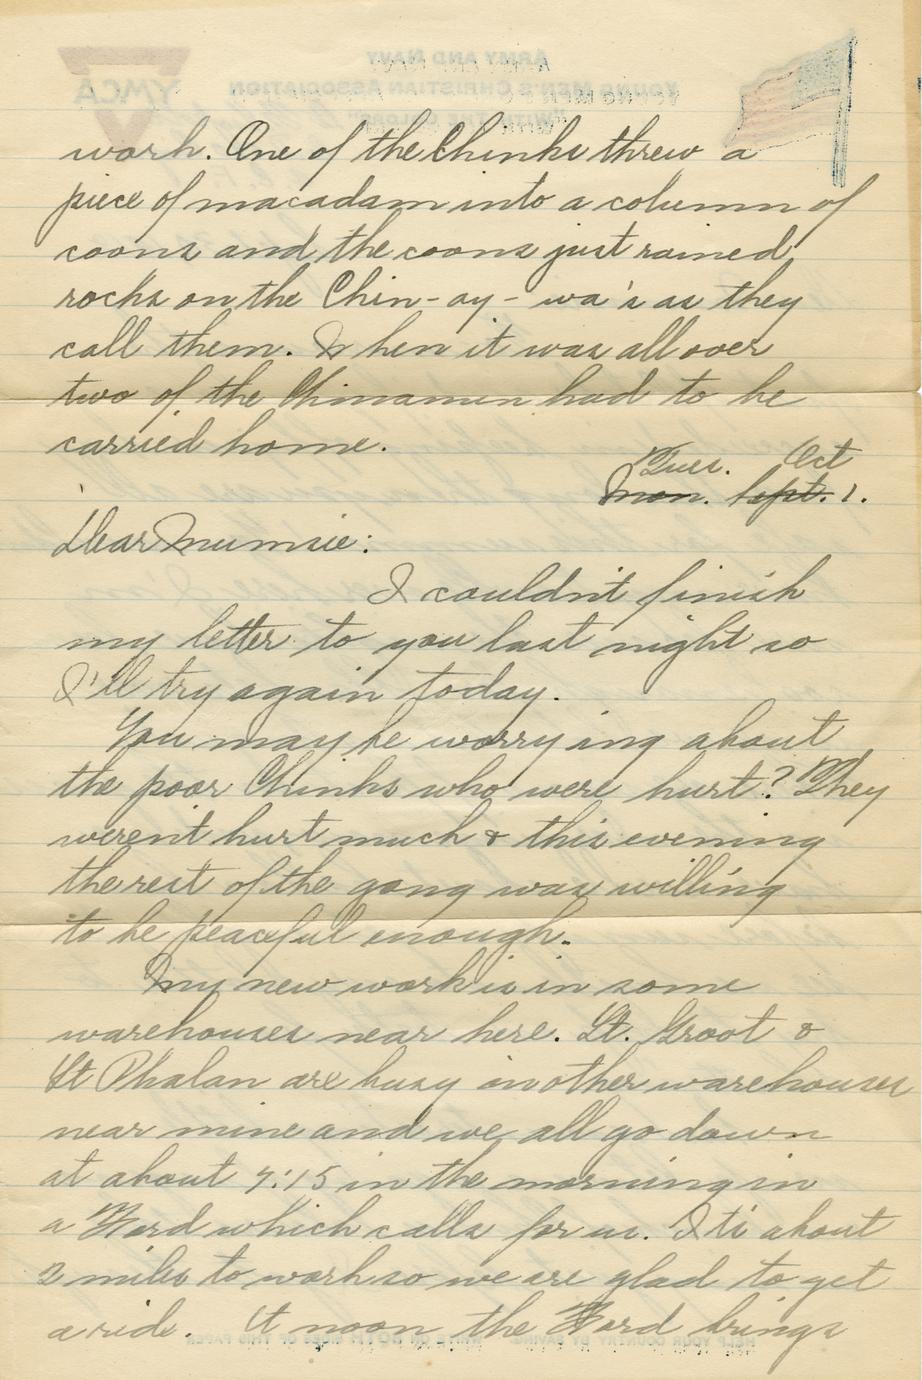 work. One of the Chinks threw a
piece of macadam into a column of
coons and the coons just rained
rocks on the Chin-ay-wa's as they
call them. When it was all over
two of the Chinamen had to be
carried home.
Tues. Oct
Mon. Sept. 1.
Dear Mumsie:
I couldn't finish
my letter to you last night so
I'll try again today.
You may be worrying about
the poor Chinks who were hurt? They
werent hurt much & this evening
the rest of the gang was willing
to be peaceful enough.
My new work is in some
warehouses near here. Lt. Groot &
Lt Phalan are busy in other warehouses
near mine and we all go down
at about 7:15 in the morning in
a Ford which calls for us. Iti about
2 miles to work so we are glad to get
a ride. At noon the Ford brings